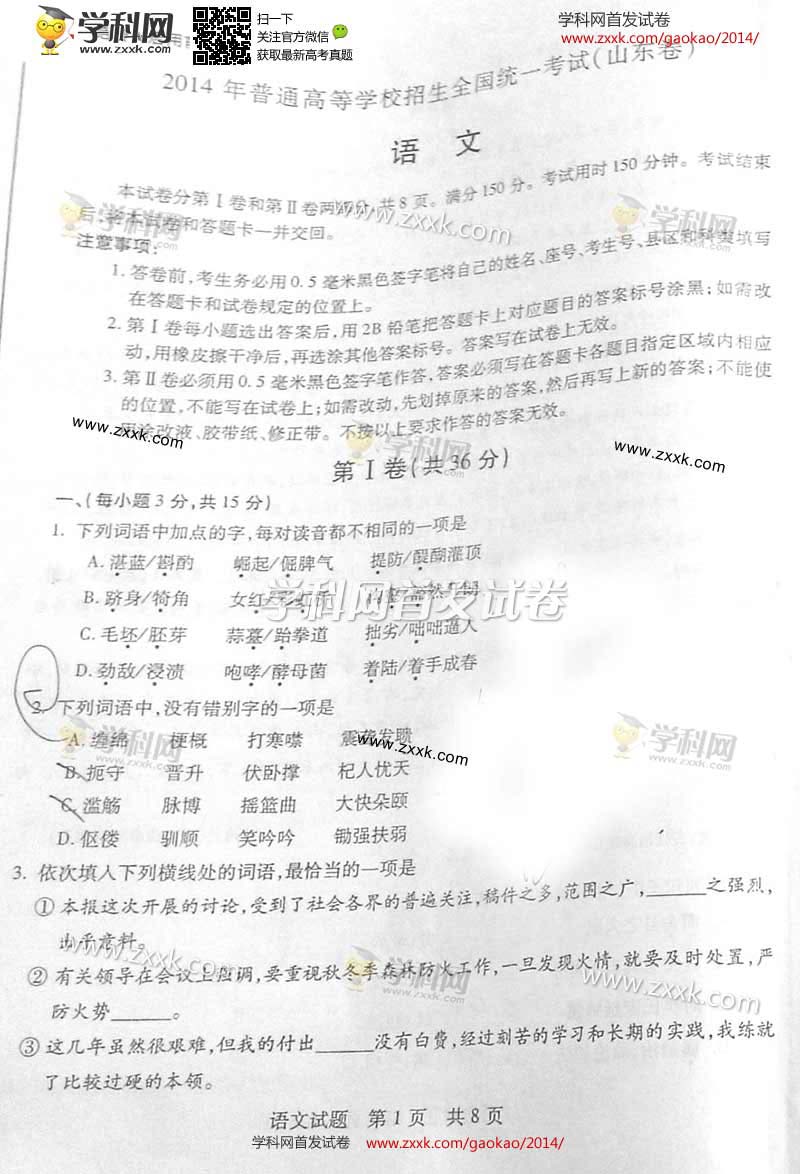 学科网
www.zxxk.com
扫一下
关注官方微信
获取最新高考真题
学科网首发试卷
www.zxxk.com/gaokao/2014/
2014 年普通高等学校招生全国统一考试(山东卷)
语 文
本试卷分第Ⅰ卷和第Ⅱ卷两部分,共8页。满分150分。考试用时150分钟。考试结束
后,将本试卷和答题卡一并交回。
注意事项:
1. 答卷前,考生务必用0.5毫米黑色签字笔将自己的姓名、座号、考生号、县区和科类填写
在答题卡和试卷规定的位置上。
2. 第Ⅰ卷每小题选出答案后,用2B铅笔把答题卡上对应题目的答案标号涂黑;如需改
动,用橡皮擦干净后,再选涂其他答案标号。答案写在试卷上无效。
3. 第Ⅱ卷必须用0.5毫米黑色签字笔作答,答案必须写在答题卡各题目指定区域内相应
的位置,不能写在试卷上;如需改动,先划掉原来的答案,然后再写上新的答案;不能使
用涂改液、胶带纸、修正带。不按以上要求作答的答案无效。
第Ⅰ卷(共36分)
一、(每小题3分,共15分)
1. 下列词语中加点的字,每对读音都不相同的一项是
A. 湛蓝/斟酌 崛起/倔脾气 提防/醍醐灌顶
B. 跻身/犄角 女红/彩虹
C. 毛坯/胚芽 蒜薹/跆拳道 拙劣/咄咄逼人
D. 劲敌/浸渍 咆哮/酵母菌 着陆/着手成春
2. 下列词语中,没有错别字的一项是
A. 缠绵 梗概 打寒噤 震聋发聩
B. 扼守 晋升 伏卧撑 杞人忧天
C. 滥觞 脉博 摇篮曲 大快朵颐
D. 伛偻 驯顺 笑吟吟 锄强扶弱
3. 依次填入下列横线处的词语,最恰当的一项是
① 本报这次开展的讨论,受到了社会各界的普遍关注,稿件之多,范围之广,______之强烈,
出乎意料。
② 有关领导在会议上强调,要重视秋冬季森林防火工作,一旦发现火情,就要及时处置,严
防火势______。
③ 这几年虽然很艰难,但我的付出______没有白费,经过刻苦的学习和长期的实践,我练就
了比较过硬的本领。
语文试题 第1页 共8页
学科网首发试卷
www.zxxk.com/gaokao/2014/